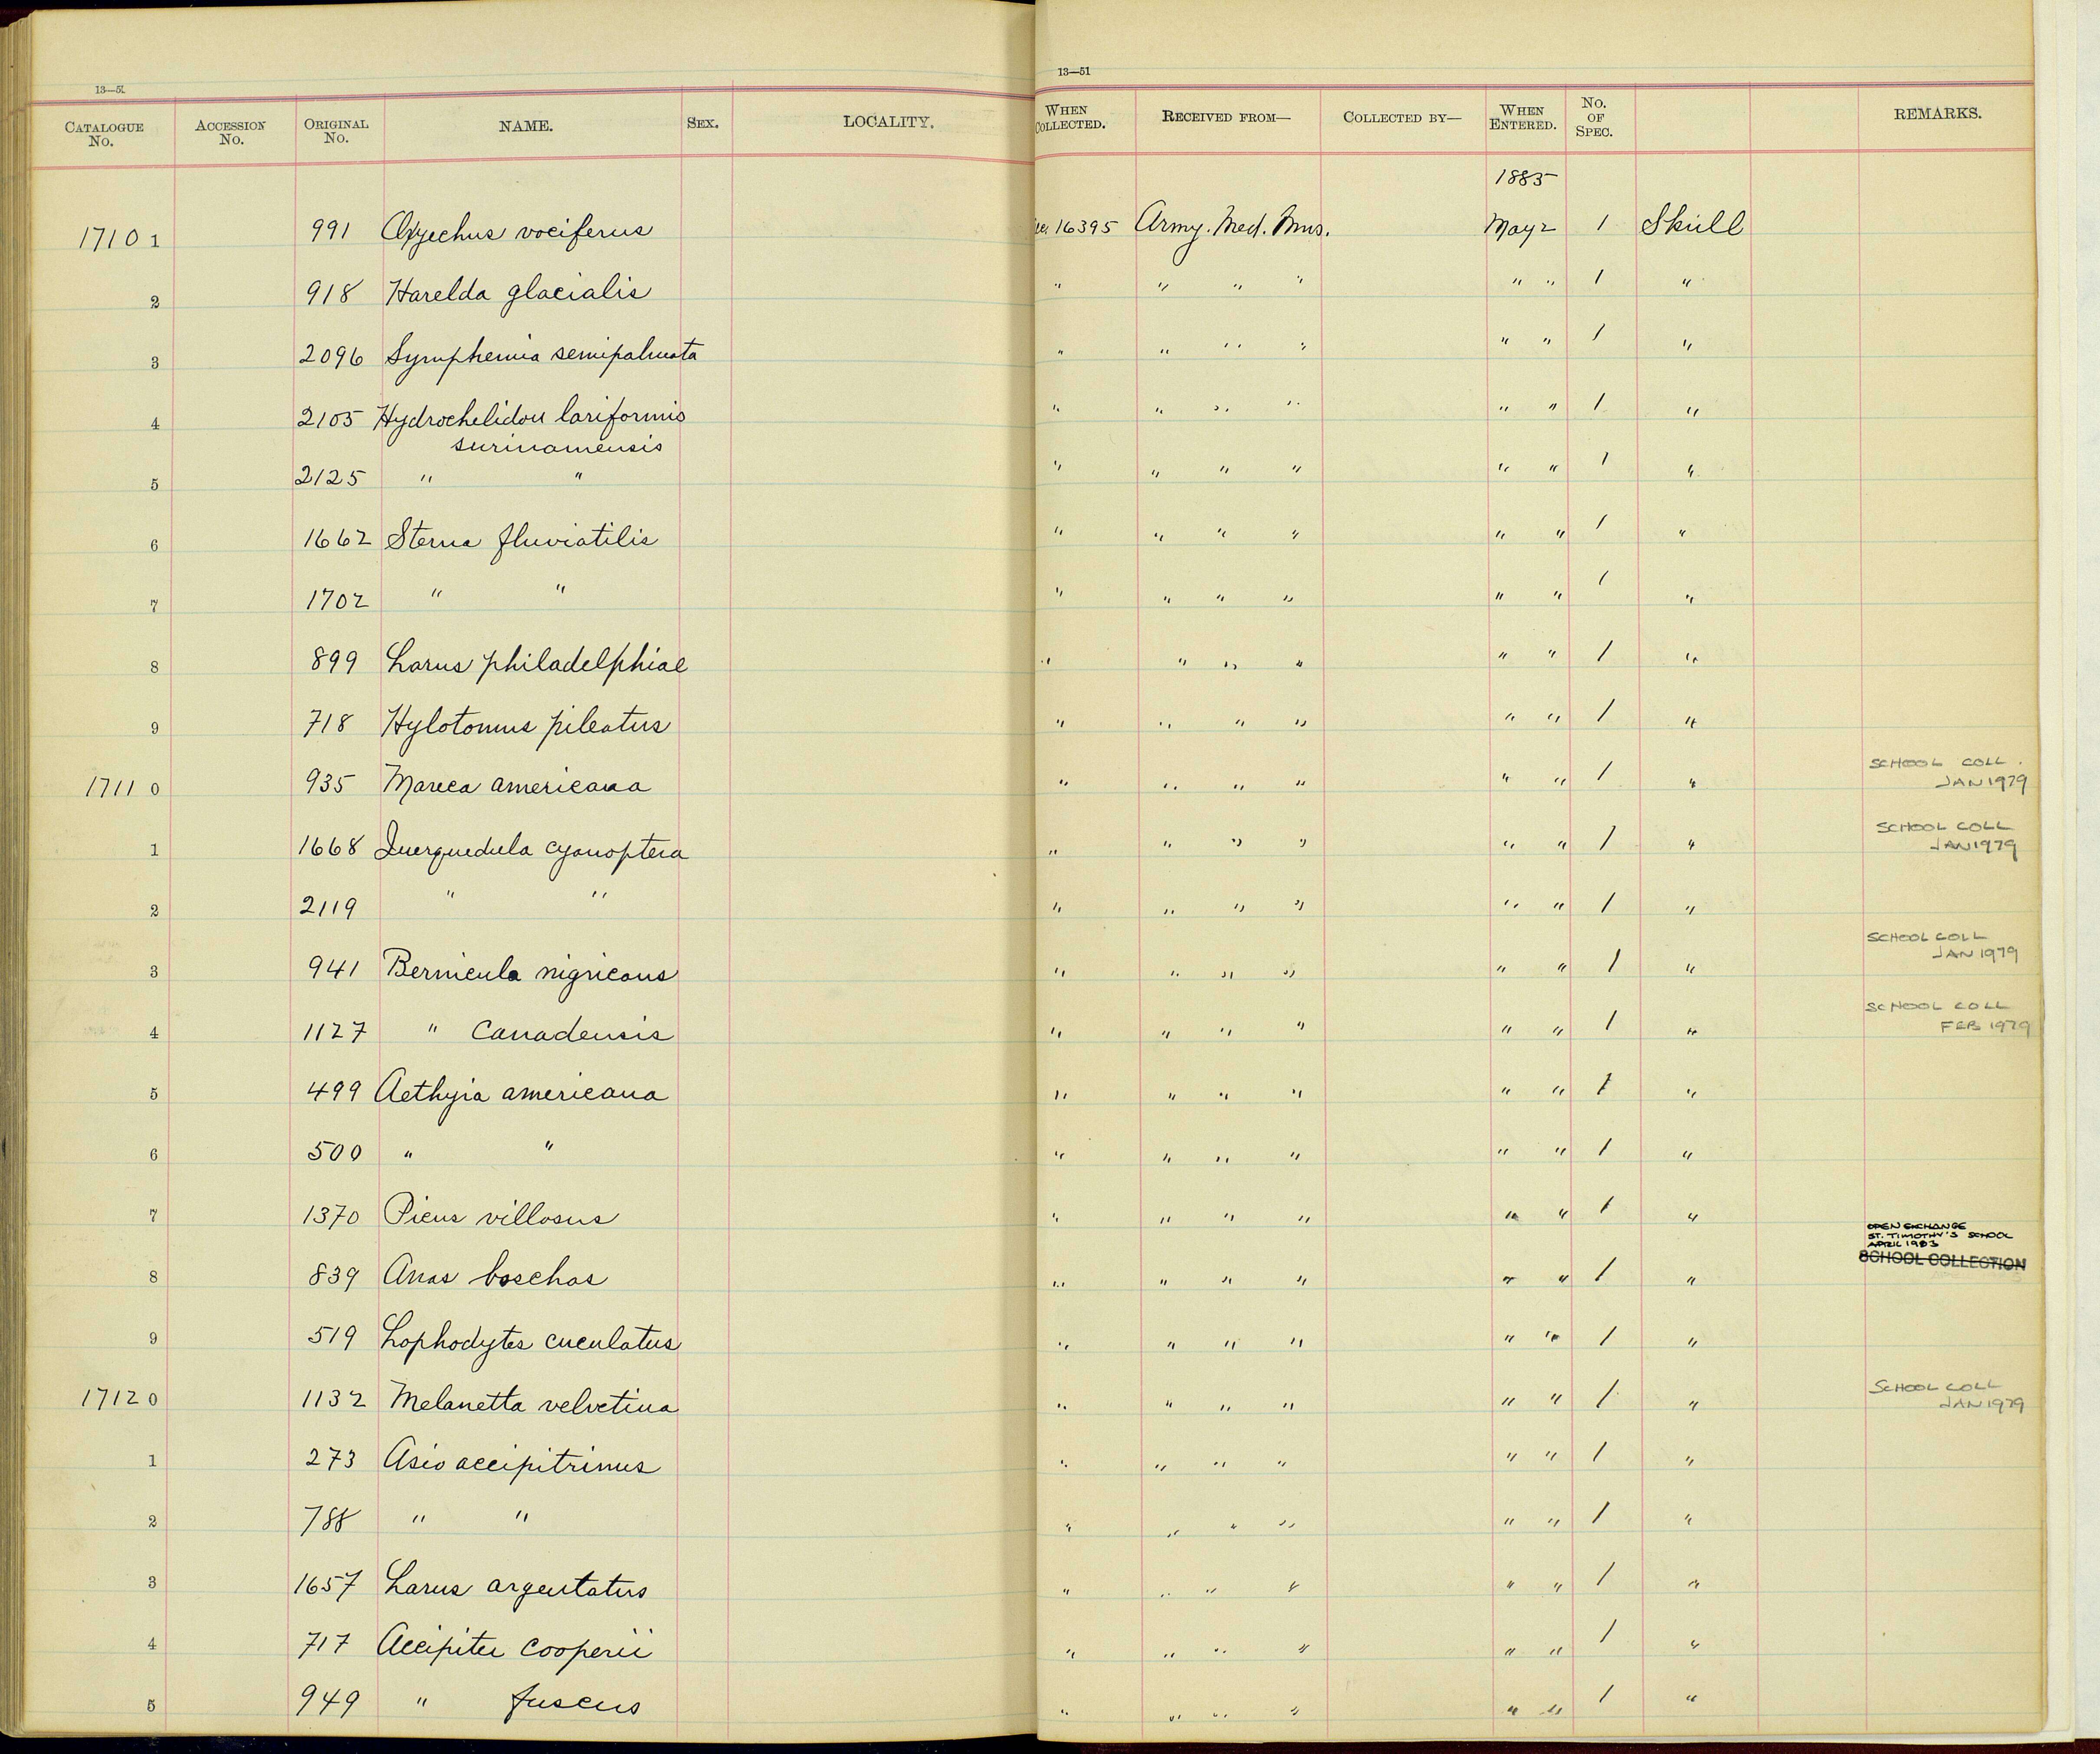 13—51
CATALOGUE No. ACCESSION No. ORIGINAL No. NAME. SEX. LOCALITY.
13—51
WHEN COLLECTED. RECEIVED FROM— COLLECTED BY— WHEN ENTERED. No. OF SPEC. REMARKS.
1885
17101 991 Oxyechus vociferus 16395 Army. Med. Mus. May 2 1 Skull
2 918 Harelda glacialis " " " " " " 1 "
3 2096 Symphemia semipalmata " " " " " " 1 "
4 2105 Hydrochelidon lariformis " " " " " " 1 "
surinamensis
5 2125 " " " " " " " " 1 "
6 1662 Sterna fluviatilis " " " " " " 1 "
7 1702 " " " " " " " " 1 "
8 899 Larus philadelphiae " " " " " " 1 "
9 718 Hylotomus pileatus " " " " " " 1 "
17110 935 Mareca americana " " " " " " 1 " SCHOOL COLL. JAN 1979
1 1668 Querquedula cyanoptera " " " " " " 1 " SCHOOL COLL JAN 1979
2 2119 " " " " " " " " 1 "
3 941 Bernicula nigricans " " " " " " 1 " SCHOOL COLL JAN 1979
4 1127 " Canadensis " " " " " " 1 " SCHOOL COLL FEB 1979
5 499 Aethyia americana " " " " " " 1 "
6 500 " " " " " " " " 1 "
7 1370 Picus villosus " " " " " " 1 "
OPEN EXCHANGE
ST. TIMOTHY'S SCHOOL
APRIL 1983
SCHOOL COLLECTION
8 839 Anas boschas " " " " " " 1 "
9 519 Lophodytes cuculatus " " " " " " 1 "
17120 1132 Melanetta velvetina " " " " " " 1 " SCHOOL COLL JAN 1979
1 273 Asio accipitrinus " " " " " " 1 "
2 788 " " " " " " " " 1 "
3 1657 Larus argentatus " " " " " " 1 "
4 717 Accipiter cooperii " " " " " " 1 "
5 949 " fuscus " " " " " " 1 "